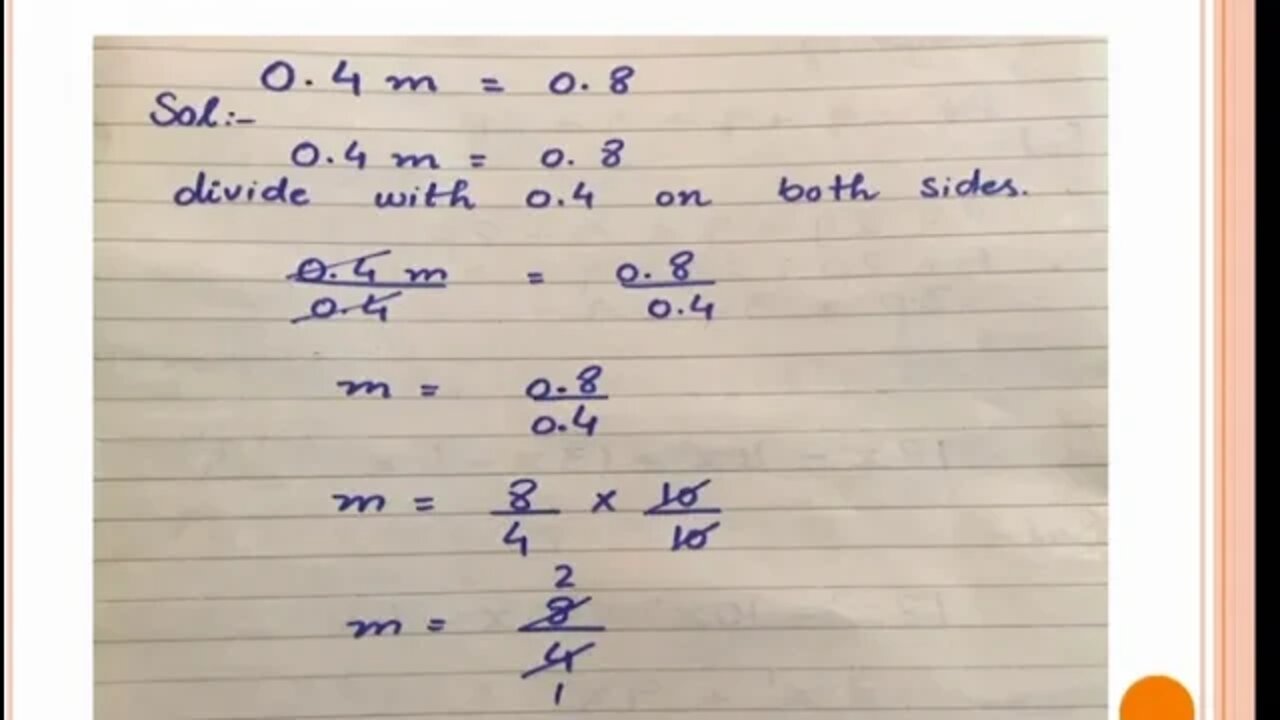 0.4 m = 0.8
Sol:-
0.4 m = 0.8
divide with 0.4 on both sides.
0.4 m / 0.4 = 0.8 / 0.4
m = 0.8 / 0.4
m = 8 / 4 × 10 / 10
2
m = 8 / 4
1